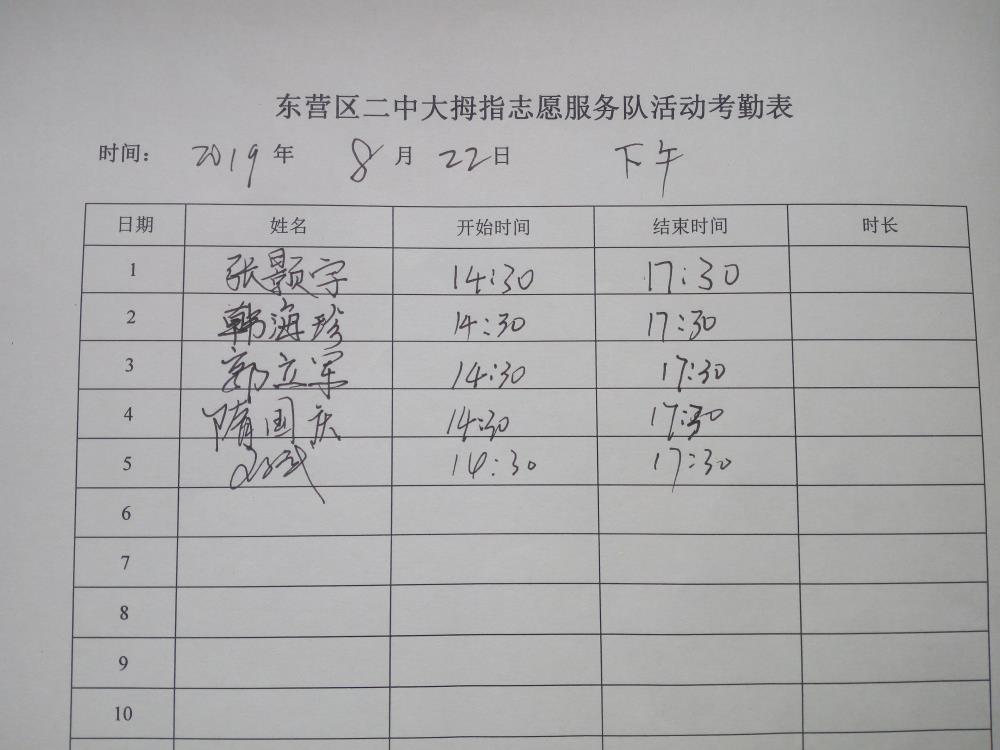 东营区二中大拇指志愿服务队活动考勤表
时间: 2019 年 8 月 22 日 下午
日期 姓名 开始时间 结束时间 时长
1 张颢宇 14:30 17:30
2 韩海珍 14:30 17:30
3 郭立军 14:30 17:30
4 隋国庆 14:30 17:30
5 14:30 17:30
6
7
8
9
10